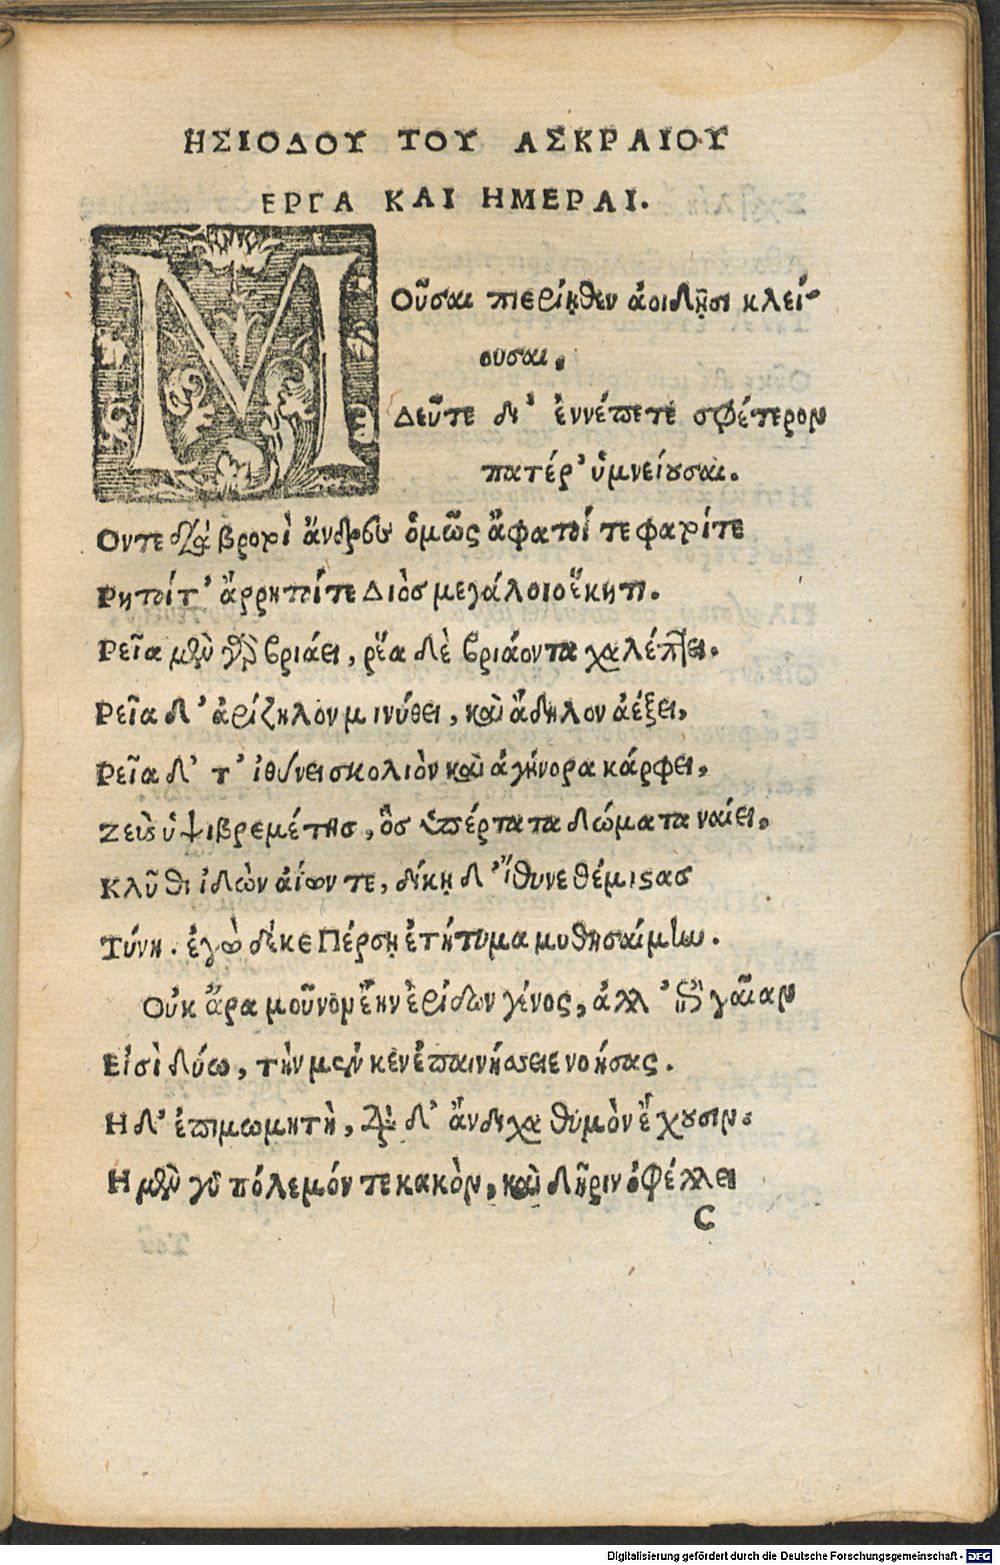 ΗΣΙΟΔΟΥ ΤΟΥ ΑΣΚΡΑΙΟΥ
ΕΡΓΑ ΚΑΙ ΗΜΕΡΑΙ.
ΜΟῦσαι πιερίῃθεν ἀοιδῇσι κλεί-
ουσαι,
Δεῦτε δι' ἐννέπετε σφέτερον
πατέρ' ὑμνείουσαι.
Οντε διὰ βροτοὶ ἄνδρες ὁμῶς ἄφατοί τε φατοίτε
Ρητοίτ' ἄρρητοίτε Διὸς μεγάλοιο ἕκητι.
Ρεῖα μὲν γὰρ βριάει, ῥέα δὲ βριάοντα χαλέπτει.
Ρεῖα δ' ἀρίζηλον μινύθει, καὶ ἄδηλον ἀέξει,
Ρεῖα δ' τ' ἰθύνει σκολιὸν καὶ ἀγήνορα κάρφει,
Ζεὺς ὑψιβρεμέτης, ὃς ὑπέρτατα δώματα ναίει,
Κλῦθι ἰδὼν ἀΐων τε, δίκῃ δ' ἴθυνε θέμιστας
Τύνη. ἐγὼ δέκε Πέρσῃ ἐτήτυμα μυθησαίμην.
Οὐκ ἄρα μοῦνον ἔην ἐρίδων γένος, ἀλλ' ἐπὶ γαῖαν
Εἰσὶ δύω, τὴν μὲν κεν ἐπαινήσειε νοήσας.
Η δ' ἐπιμωμητὴ, διὰ δ' ἄνδιχα θυμὸν ἔχουσιν.
Η μὲν γὰρ πόλεμόν τε κακὸν, καὶ δῆριν ὀφέλλει
C
Digitalisierung gefördert durch die Deutsche Forschungsgemeinschaft - DFG